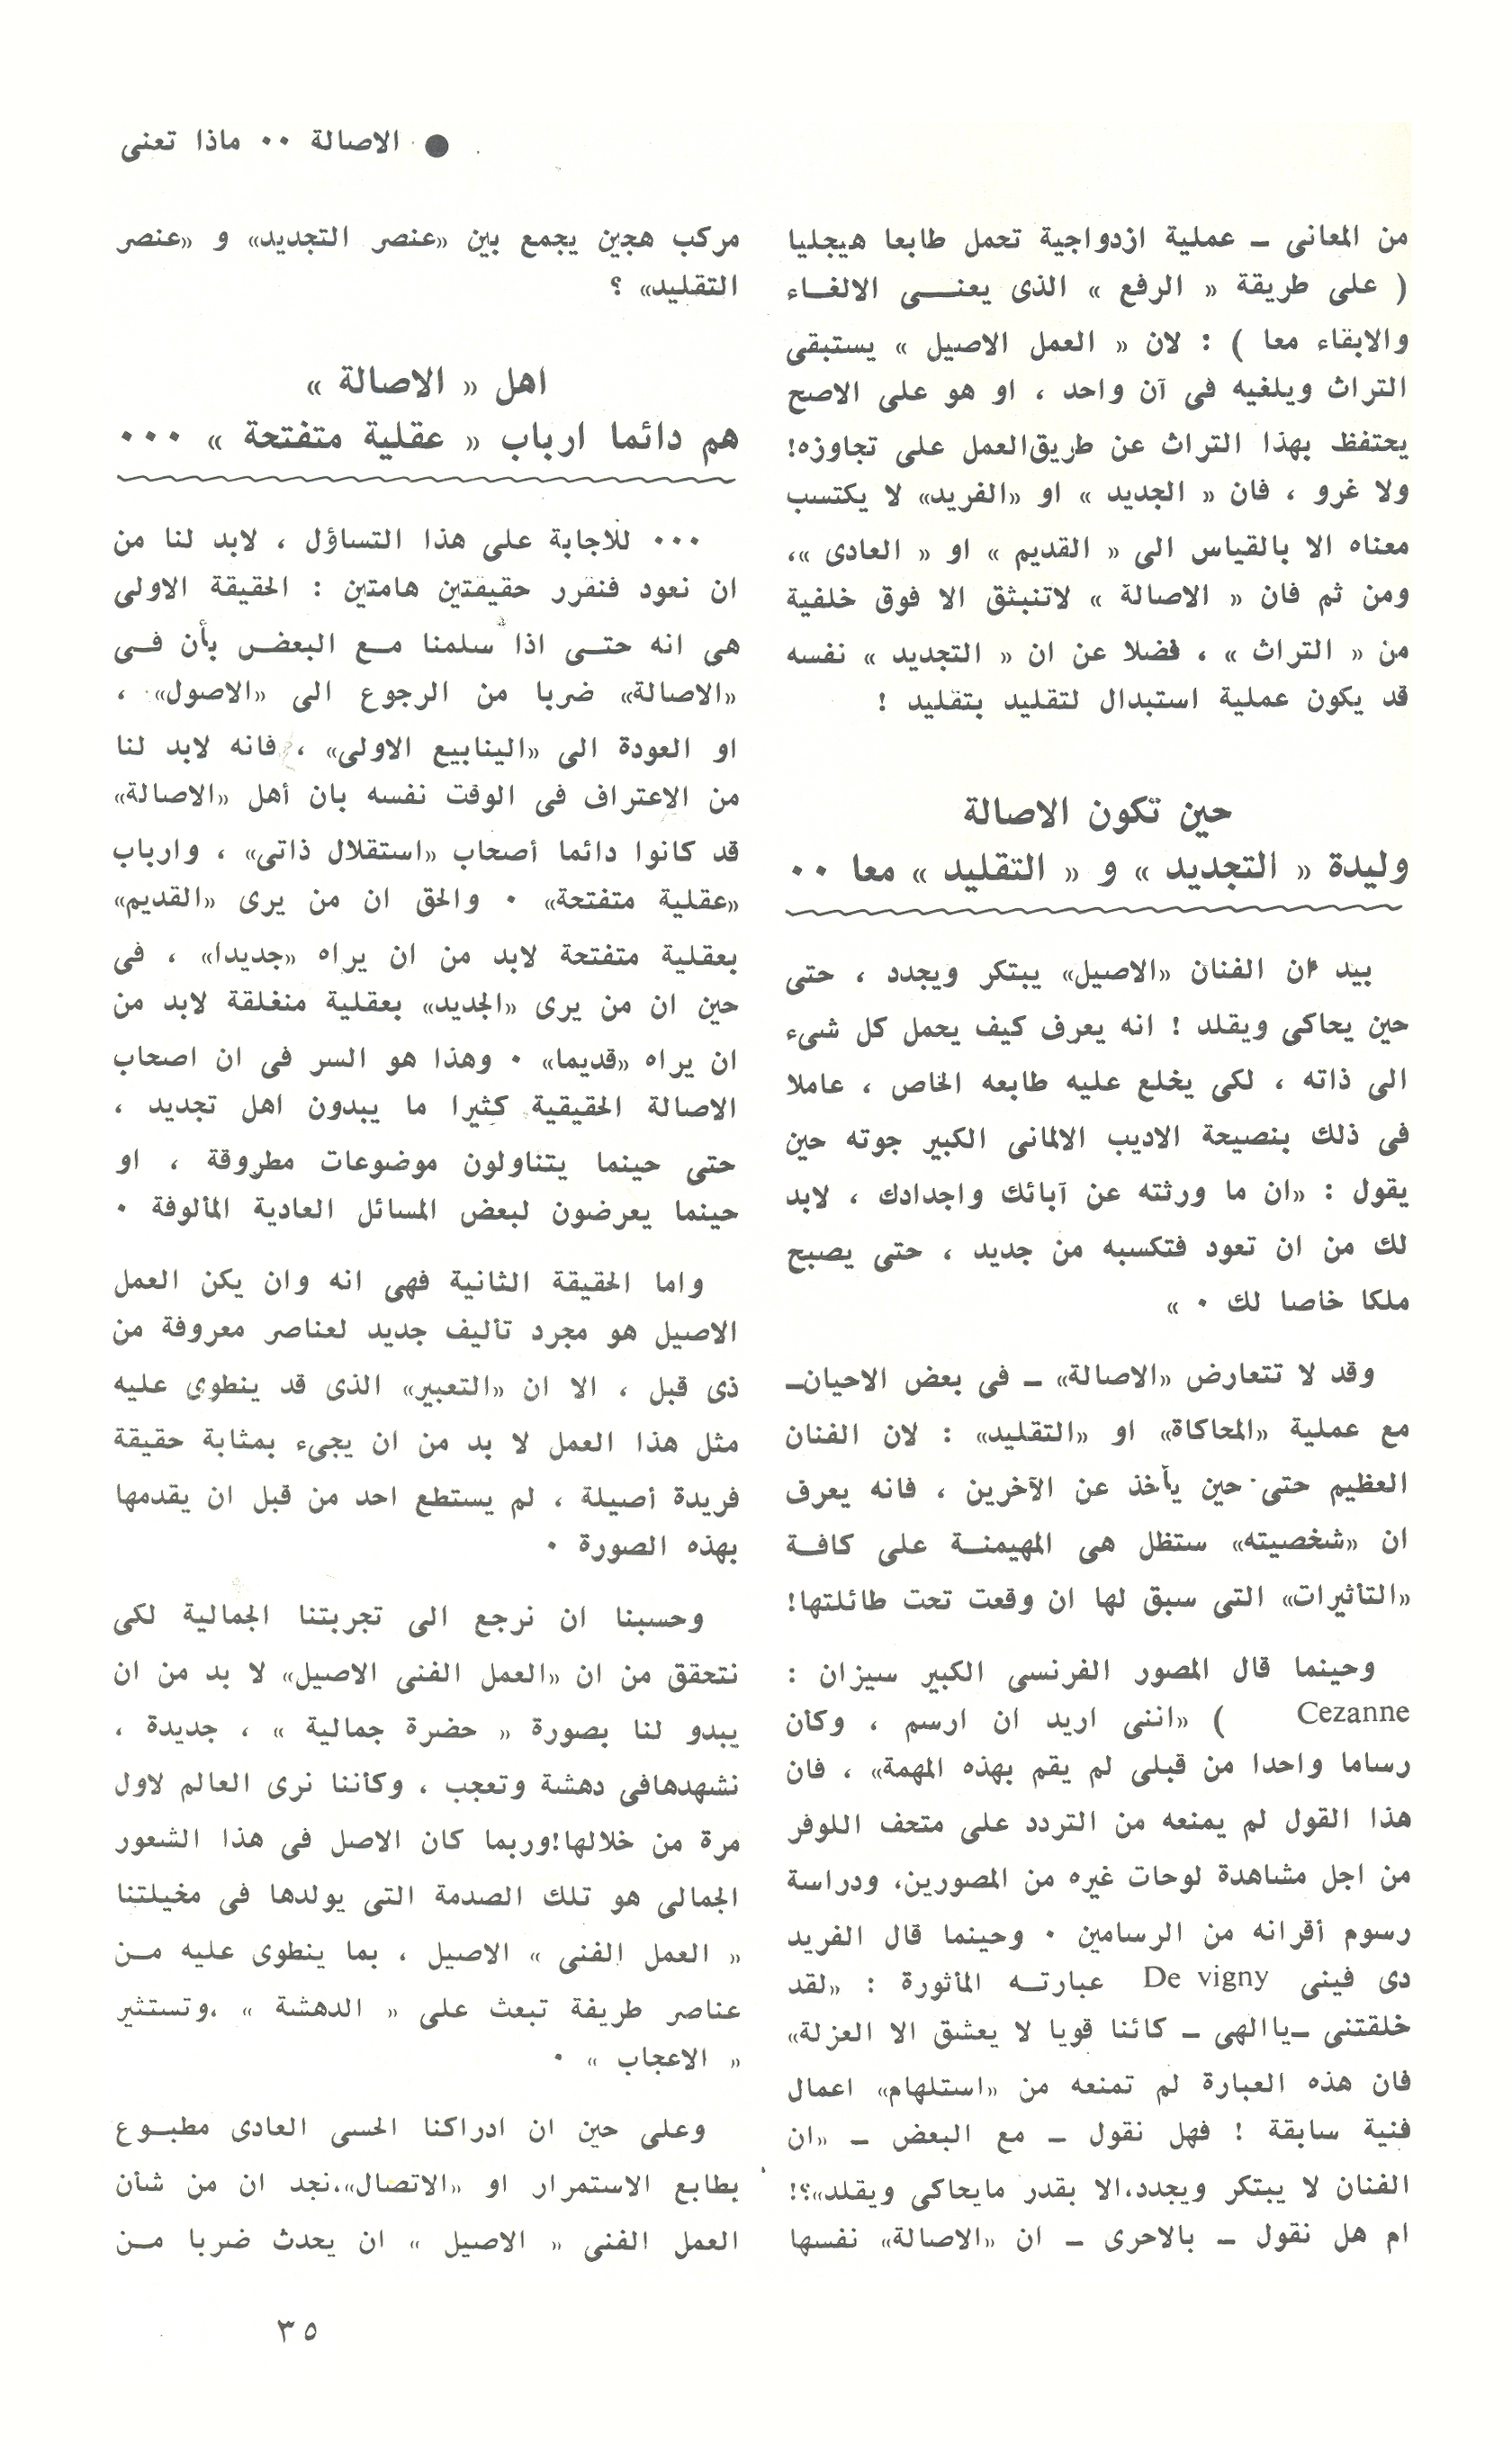 ● الاصالة ٠٠ ماذا تعنى
من المعانى ـ عملية ازدواجية تحمل طابعا هيجليا
( على طريقة « الرفع » الذى يعنـــى الالغـاء
والابقاء معا ) : لان « العمل الاصيل » يستبقى
التراث ويلغيه فى آن واحد ، او هو على الاصح
يحتفظ بهذا التراث عن طريق العمل على تجاوزه!
ولا غرو ، فان « الجديد » او «الفريد» لا يكتسب
معناه الا بالقياس الى « القديم » او « العادى »،
ومن ثم فان « الاصالة » لاتنبثق الا فوق خلفية
من « التراث » ، فضلا عن ان « التجديد » نفسه
قد يكون عملية استبدال لتقليد بتقليد !
حين تكون الاصالة
وليدة « التجديد » و « التقليد » معا ٠٠
بيد ان الفنان «الاصيل» يبتكر ويجدد ، حتى
حين يحاكى ويقلد ! انه يعرف كيف يحمل كل شىء
الى ذاته ، لكى يخلع عليه طابعه الخاص ، عاملا
فى ذلك بنصيحة الاديب الالمانى الكبير جوته حين
يقول : «ان ما ورثته عن آبائك واجدادك ، لابد
لك من ان تعود فتكسبه من جديد ، حتى يصبح
ملكا خاصا لك ٠ »
وقد لا تتعارض «الاصالة» ـ فى بعض الاحيان ـ
مع عملية «المحاكاة» او «التقليد» : لان الفنان
العظيم حتى حين يأخذ عن الآخرين ، فانه يعرف
ان «شخصيته» ستظل هى المهيمنـة على كافـة
«التأثيرات» التى سبق لها ان وقعت تحت طائلتها!
وحينما قال المصور الفرنسى الكبير سيزان :
Cezanne ) «اننى اريد ان ارسم ، وكأن
رساما واحدا من قبلى لم يقم بهذه المهمة» ، فان
هذا القول لم يمنعه من التردد على متحف اللوفر
من اجل مشاهدة لوحات غيره من المصورين، ودراسة
رسوم أقرانه من الرسامين ٠ وحينما قال الفريد
دى فينى De vigny عبارتـه المأثورة : «لقد
خلقتنى ـياالهى ـ كائنا قويا لا يعشق الا العزلة»
فان هذه العبارة لم تمنعه من «استلهام» اعمال
فنية سابقة ! فهل نقول ـ مع البعض ـ «ان
الفنان لا يبتكر ويجدد،الا بقدر مايحاكى ويقلد»؟!
ام هل نقول ـ بالاحرى ـ ان «الاصالة» نفسها
مركب هجين يجمع بين «عنصر التجديد» و «عنصر
التقليد» ؟
اهل « الاصالة »
هم دائما ارباب « عقلية متفتحة » ٠٠٠
٠٠٠ للاجابة على هذا التساؤل ، لابد لنا من
ان نعود فنقرر حقيقتين هامتين : الحقيقة الاولى
هى انه حتـى اذا سلمنا مـع البعض بأن فـى
«الاصالة» ضربا من الرجوع الى «الاصول» ،
او العودة الى «الينابيع الاولى» ، فانه لابد لنا
من الاعتراف فى الوقت نفسه بان أهل «الاصالة»
قد كانوا دائما أصحاب «استقلال ذاتى» ، وارباب
«عقلية متفتحة» ٠ والحق ان من يرى «القديم»
بعقلية متفتحة لابد من ان يراه «جديدا» ، فى
حين ان من يرى «الجديد» بعقلية منغلقة لابد من
ان يراه «قديما» ٠ وهذا هو السر فى ان اصحاب
الاصالة الحقيقية كثيرا ما يبدون اهل تجديد ،
حتى حينما يتناولون موضوعات مطروقة ، او
حينما يعرضون لبعض المسائل العادية المألوفة ٠
واما الحقيقة الثانية فهى انه وان يكن العمل
الاصيل هو مجرد تأليف جديد لعناصر معروفة من
ذى قبل ، الا ان «التعبير» الذى قد ينطوى عليه
مثل هذا العمل لا بد من ان يجىء بمثابة حقيقة
فريدة أصيلة ، لم يستطع احد من قبل ان يقدمها
بهذه الصورة ٠
وحسبنا ان نرجع الى تجربتنا الجمالية لكى
نتحقق من ان «العمل الفنى الاصيل» لا بد من ان
يبدو لنا بصورة « حضرة جمالية » ، جديدة ،
نشهدهافى دهشة وتعجب ، وكأننا نرى العالم لاول
مرة من خلالها!وربما كان الاصل فى هذا الشعور
الجمالى هو تلك الصدمة التى يولدها فى مخيلتنا
« العمل الفنى » الاصيل ، بما ينطوى عليه مـن
عناصر طريفة تبعث على « الدهشة » ،وتستثير
« الاعجاب » ٠
وعلى حين ان ادراكنا الحسى العادى مطبـوع
بطابع الاستمرار او «الاتصال»،نجد ان من شأن
العمل الفنى « الاصيل » ان يحدث ضربا مـن
٣٥